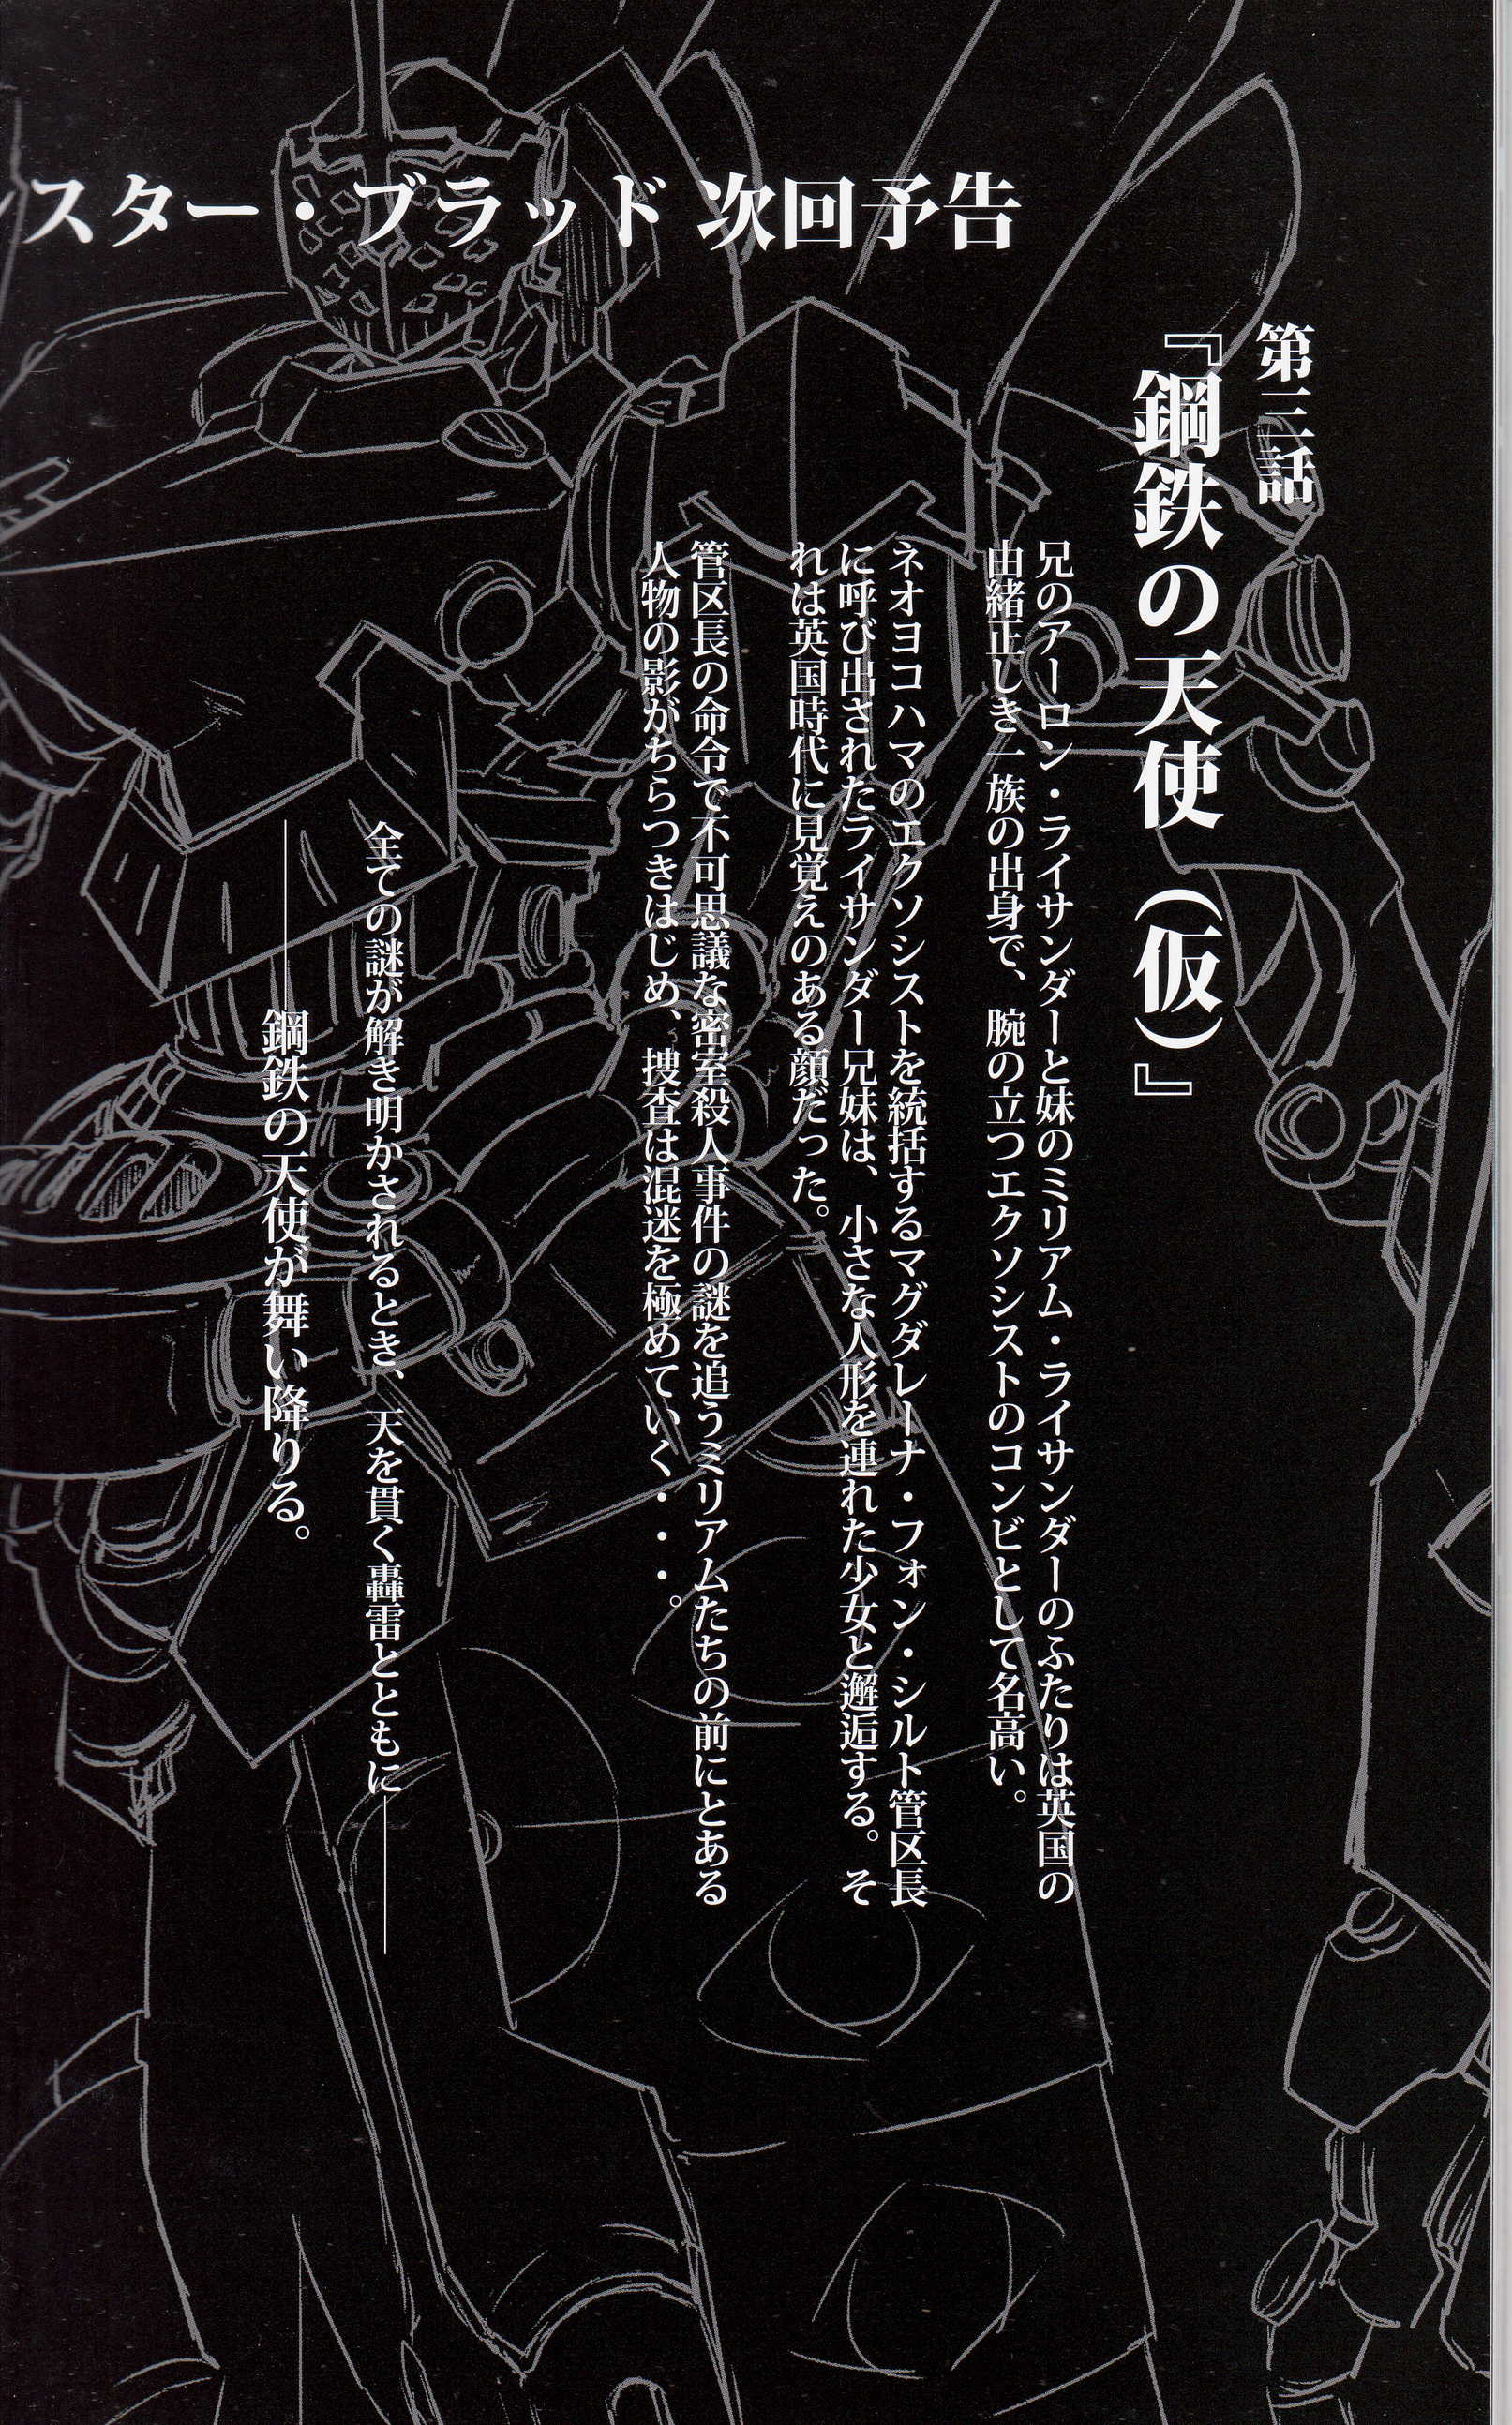 スター・ブラッド 次回予告
第三話
『鋼鉄の天使（仮）』
兄のアーロン・ライサンダーと妹のミリアム・ライサンダーのふたりは英国の
由緒正しき一族の出身で、腕の立つエクソシストのコンビとして名高い。
ネオヨコハマのエクソシストを統括するマグダレーナ・フォン・シルト管区長
に呼び出されたライサンダー兄妹は、小さな人形を連れた少女と邂逅する。そ
れは英国時代に見覚えのある顔だった。
管区長の命令で不可思議な密室殺人事件の謎を追うミリアムたちの前にとある
人物の影がちらつきはじめ、捜査は混迷を極めていく・・・。
全ての謎が解き明かされるとき、天を貫く轟雷とともに――
――鋼鉄の天使が舞い降りる。